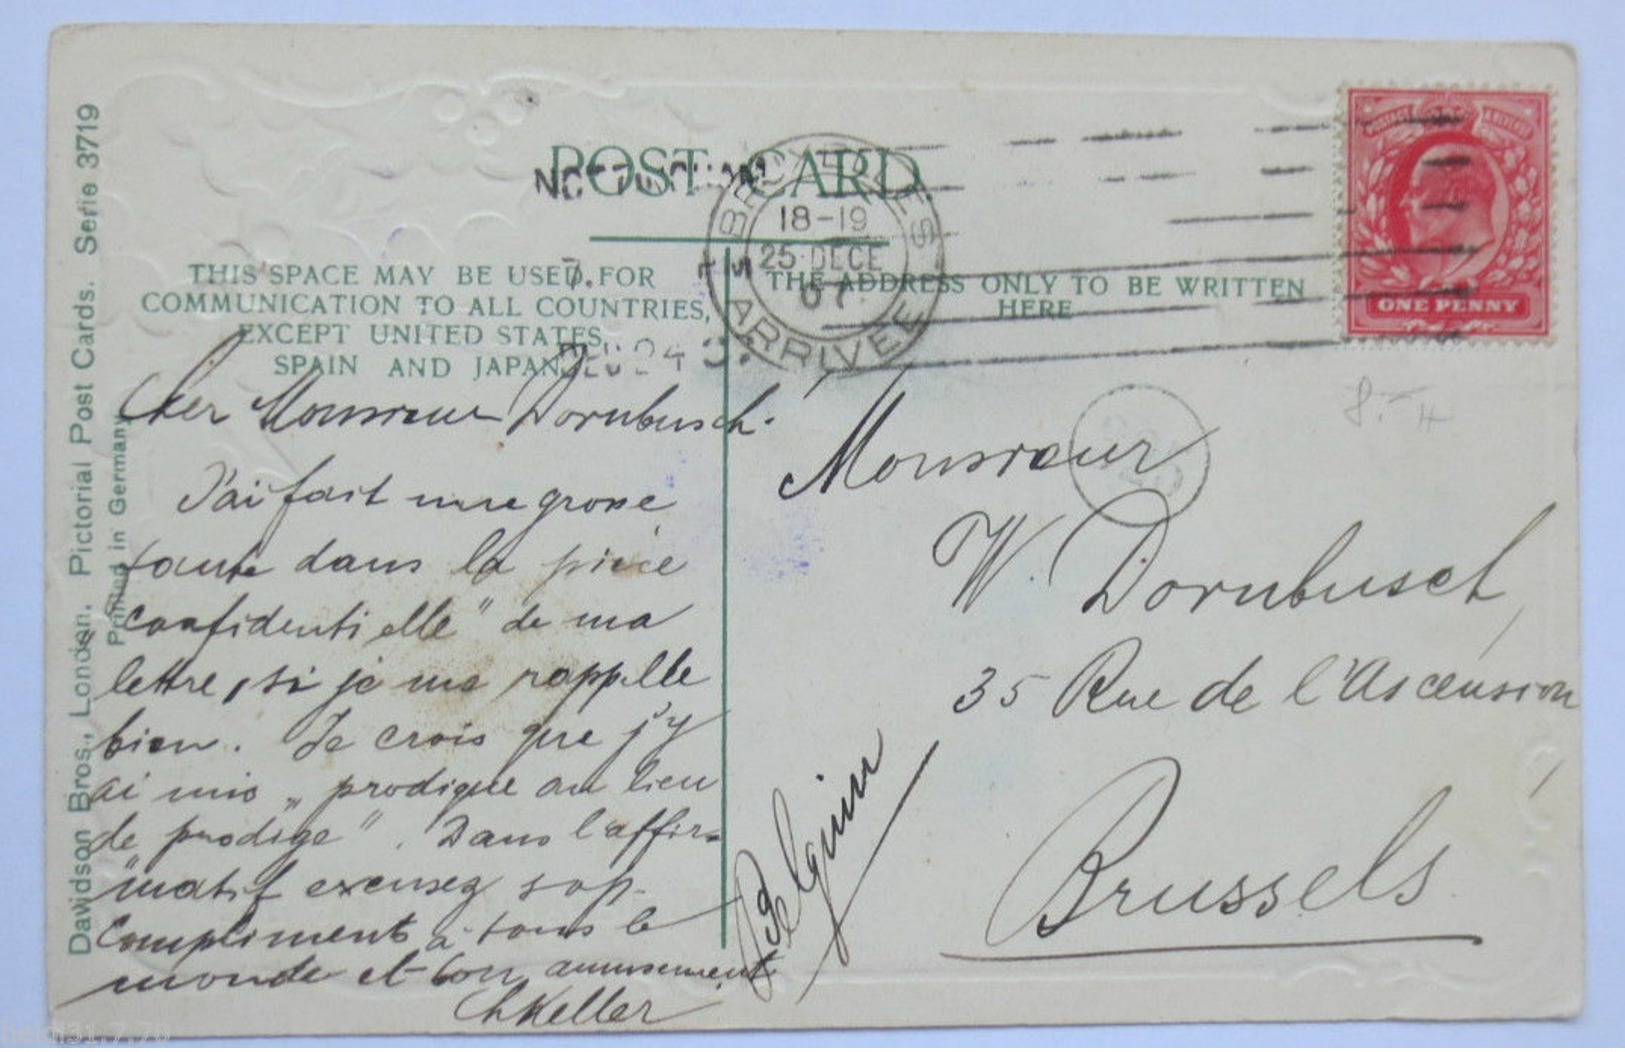 POST CARD.
THIS SPACE MAY BE USED FOR
COMMUNICATION TO ALL COUNTRIES,
EXCEPT UNITED STATES,
SPAIN AND JAPAN.
THE ADDRESS ONLY TO BE WRITTEN
HERE
BRUXELLES
18-19
25 DECE
07
ARRIVEE
ONE PENNY
Davidson Bros., London, Pictorial Post Cards. Serie 3719
Printed in Germany
Cher Monsieur Dornbusch.
J'ai fait une grosse
faute dans la pièce
"confidentielle" de ma
lettre, si je me rappelle
bien. Je crois que j'y
ai mis "prodigue au lieu
de prodige". Dans l'affir-
matif excusez svp.
Compliments à tous le
monde et bon amusement
ChKeller
Monsieur
W. Dornbusch,
35 Rue de l'Ascension
Brussels
Belgium
heidi31.7.70